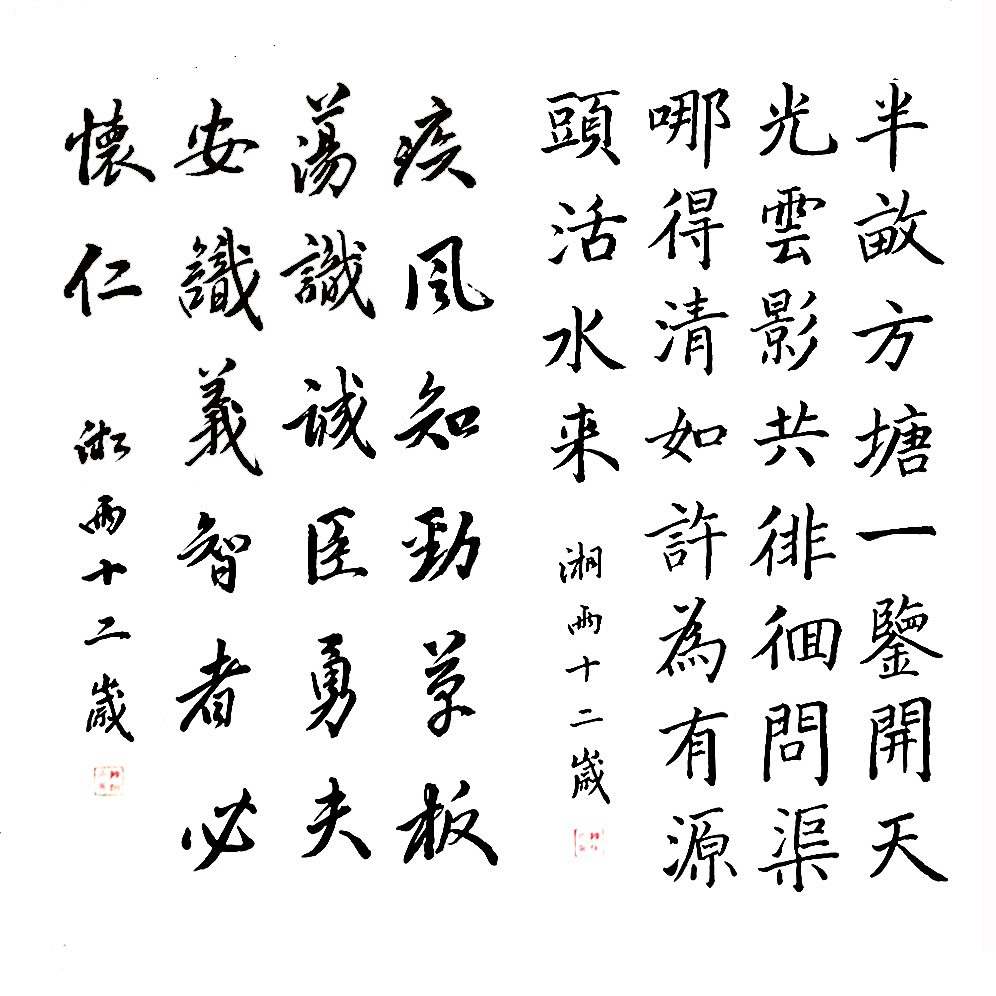 半畝方塘一鑒開天
光雲影共徘徊問渠
哪得清如許為有源
頭活水来
湘雨十二歲
疾風知勁草板
蕩識誠臣勇夫
安識義智者必
懷仁
湘雨十二歲